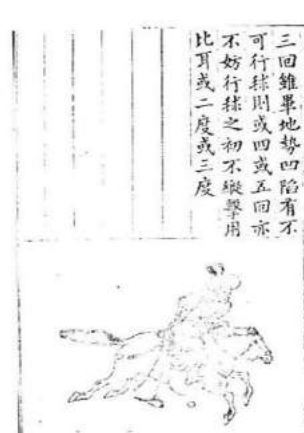 三回雖畢地勢凹陷有不
可行毬則或四或五回亦
不妨行毬之初不縱擊用
比耳或二度或三度